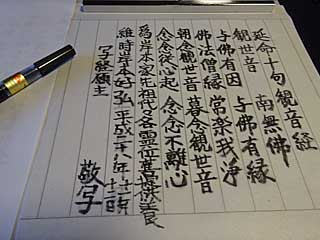 延命十句観音経
観世音 南無佛
与佛有因 与佛有縁
佛法僧縁 常楽我浄
朝念観世音 暮念観世音
念念従心起 念念不離心
為岸本家先祖代々各霊位萬歳
維時岸本好弘 平成二十八年十二月
写経願主 敬写